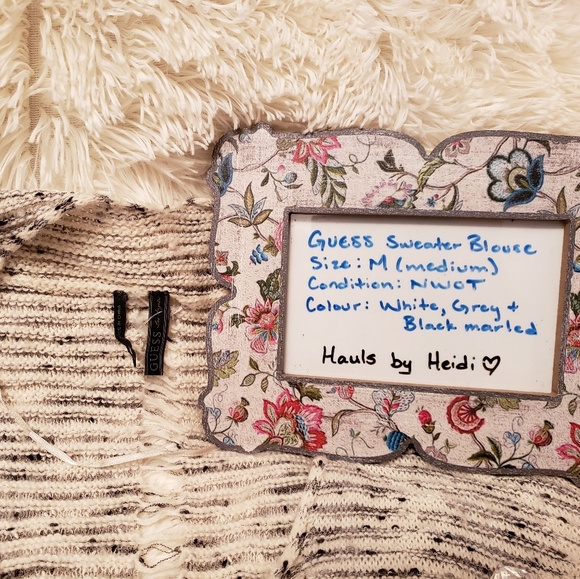 GUESS
GUESS Sweater Blouse
Size: M (medium)
Condition: NWOT
Colour: White, Grey +
Black marled
Hauls by Heidi ♡